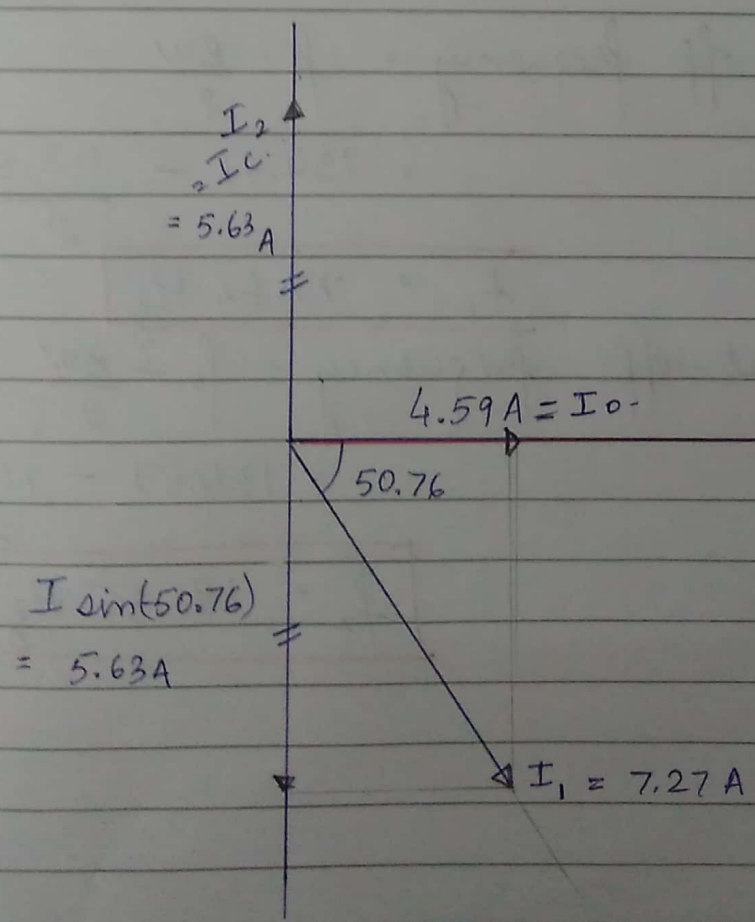 I₂
= Ic.
= 5.63 A
4.59 A = Io.
50.76
I sin(-50.76)
= 5.63A
I₁ = 7.27 A